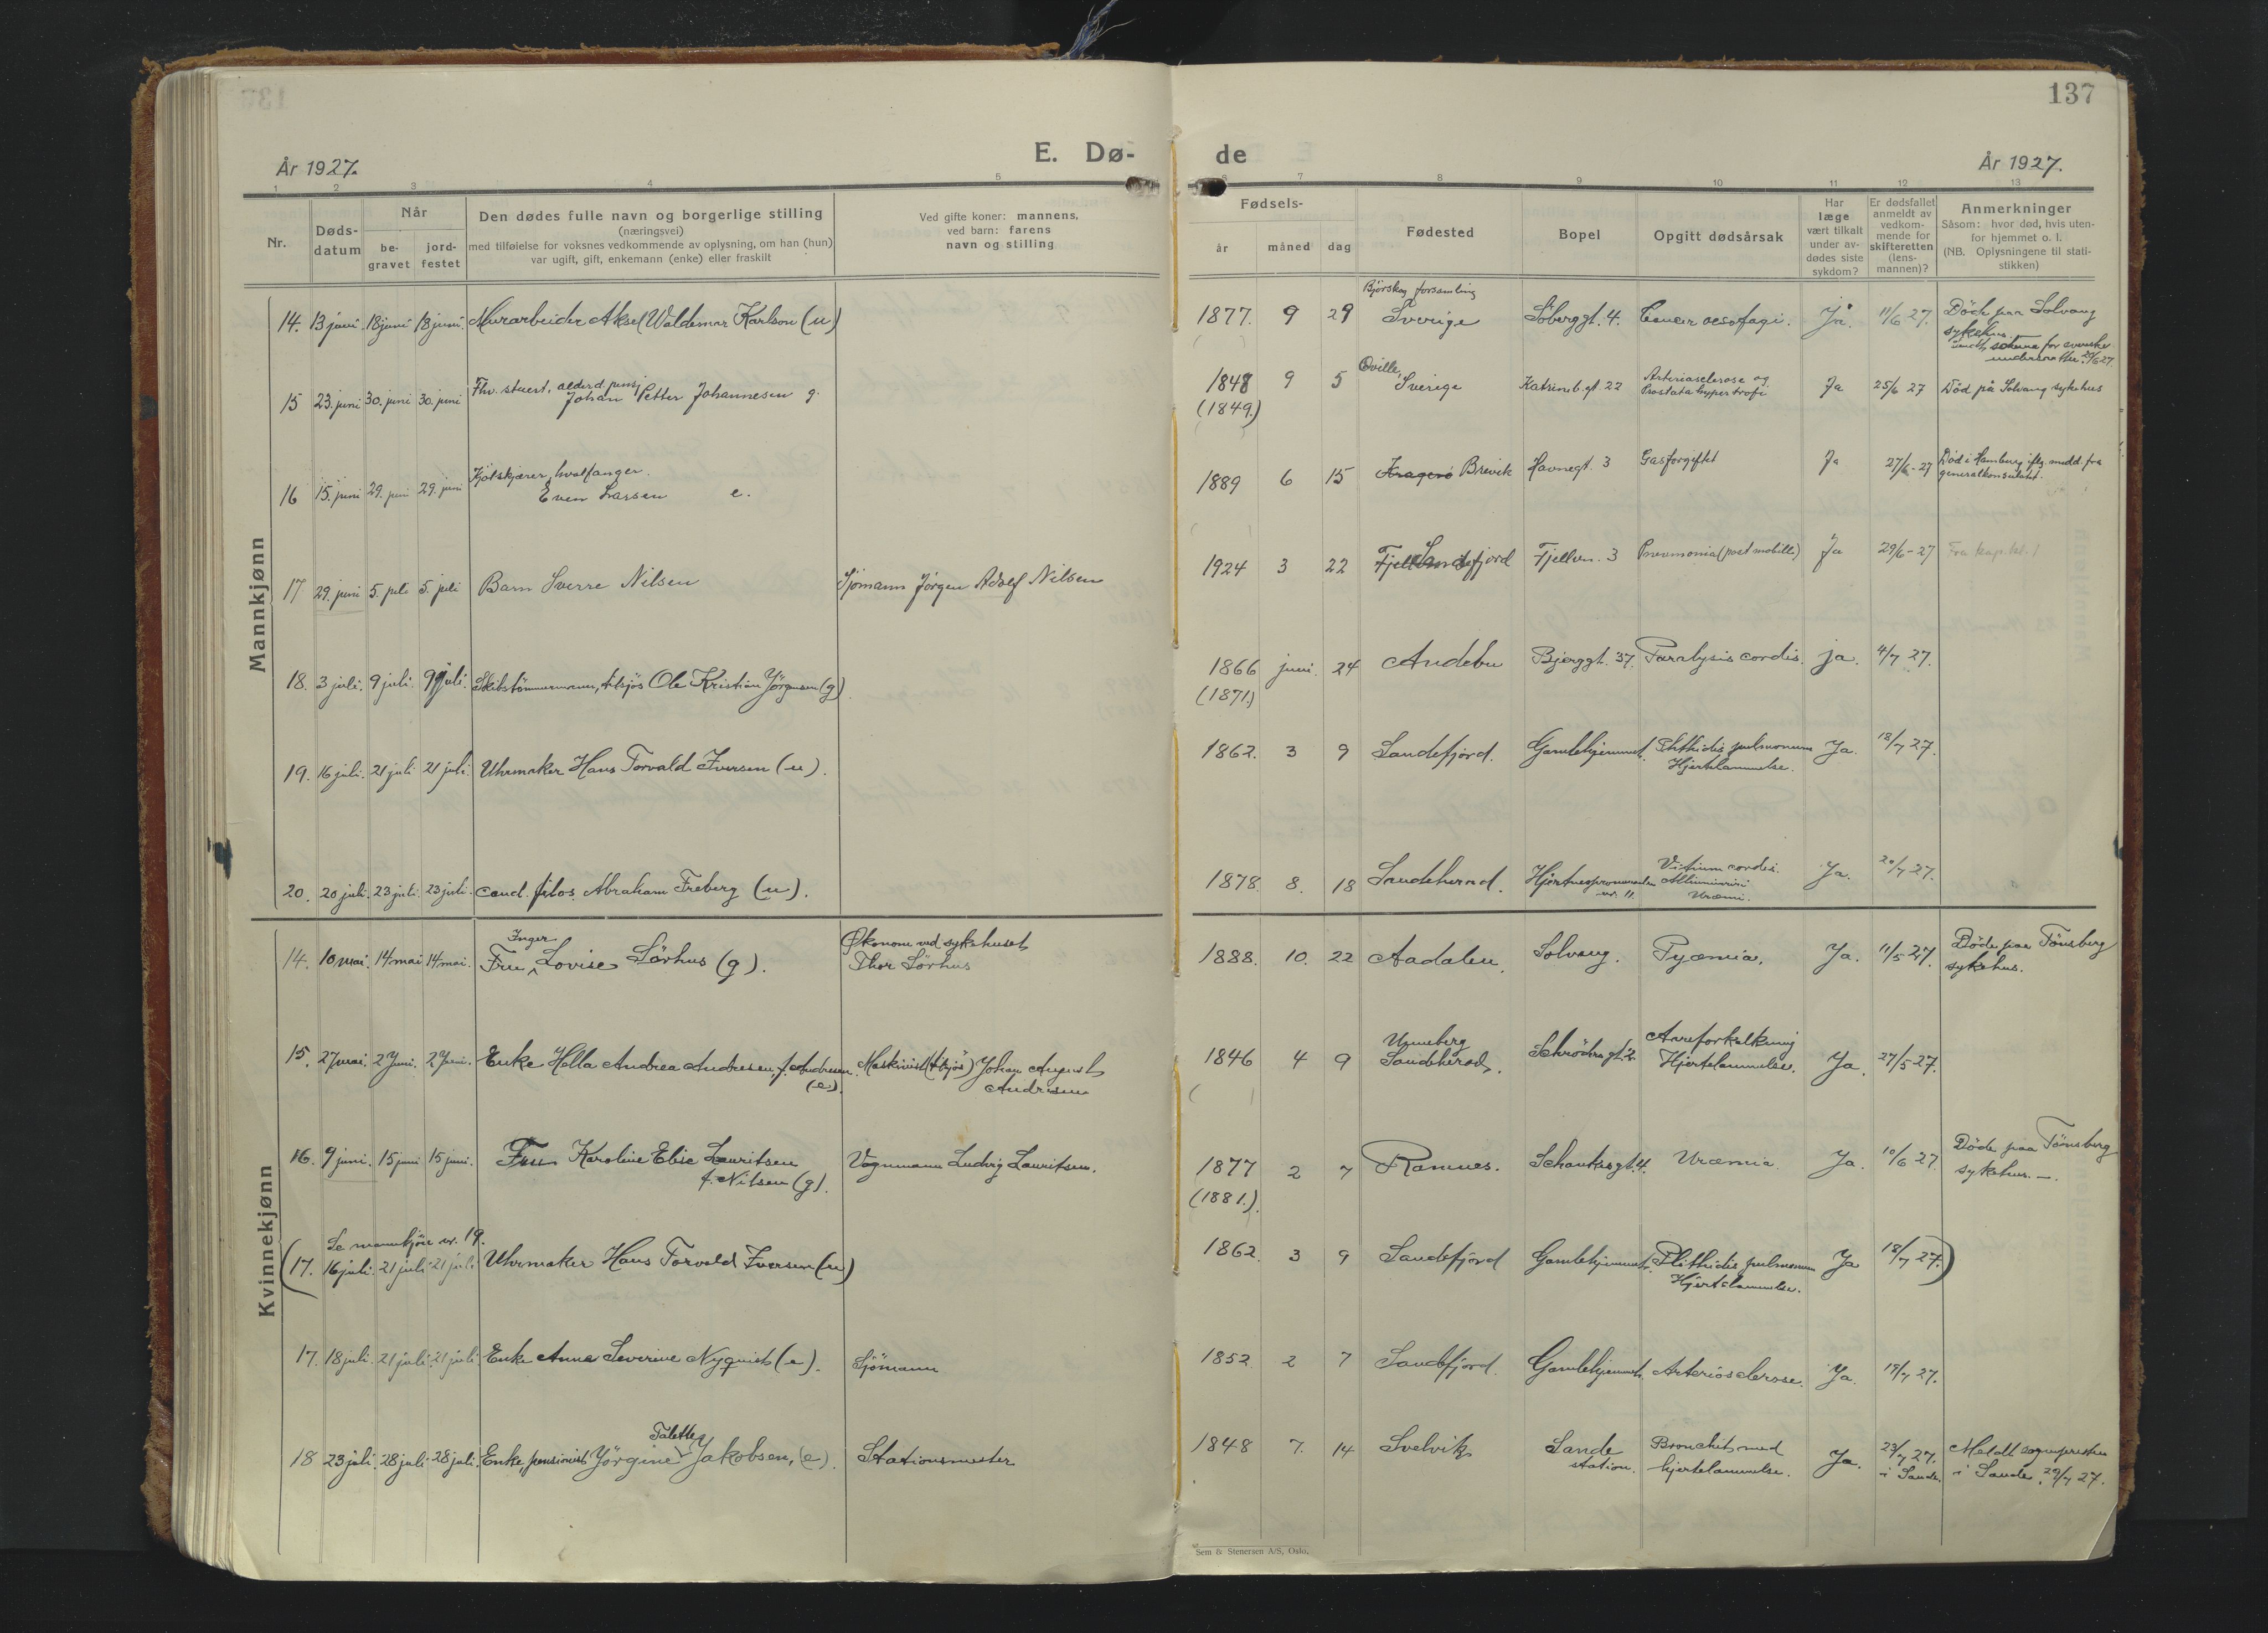 137
E. Dø- de
År 1927.
År 1927.
1 2 3 4 5 6 7 8 9 10 11 12 13
Nr.
Døds-
datum
Når
be-
gravet
jord-
festet
Den dødes fulle navn og borgerlige stilling
(næringsvei)
med tilføielse for voksnes vedkommende av oplysning, om han (hun)
var ugift, gift, enkemann (enke) eller fraskilt
Ved gifte koner: mannens,
ved barn: farens
navn og stilling
Fødsels-
år måned dag
Fødested
Bopel
Opgitt dødsårsak
Har
læge
vært tilkalt
under av-
dødes siste
sykdom?
Er dødsfallet
anmeldt av
vedkom-
mende for
skifteretten
(lens-
mannen)?
Anmerkninger
Såsom: hvor død, hvis uten-
for hjemmet o. l.
(NB. Oplysningene til stati-
stikken)
Mannkjønn
Björskog forsamling
14. 13 juni. 18 juni 18 juni. Murarbeider Aksel Waldemar Karlson (u) 1877. 9 29 Sverige Söberggt. 4. Cancer oesofagi. Ja. 11/6 27. Döde paa Solvang
sykehus.
sendt for svenske
undersaatter 29/6 27
15 23. juni 30. juni 30. juni Fhv. stuert, alderd. pensj. Johan Petter Johannesen g. 1848 9 5 Qville, Sverige Katrineb. gt. 22 Arteriosclerose og
Prostatahypertrofi Ja 25/6 27 Död på Solvang sykehus
(1849.)
16 15. juni 29. juni 29. juni Kjötskjærer, hvalfanger.
Even Larssen e. 1889 6 15 Kragerö Brevik Havnegt. 3 Gasforgiftet Ja 27/6-27 Död i Hamburg iflg. medd. fra
generalkonsulatet.
17 29. juni 5. juli 5. juli Barn Sverre Nilsen Sjömann Jörgen Adolf Nilsen 1924 3 22 Sandefjord Fjellvn. 3 Pneumonia (post mobilli) Ja 29/6-27 Fra kap.
18. 3 juli. 9 juli. 9 juli. Skibstömmermann, tilsjös Ole Kristian Jörgensen (g) 1866 juni. 24 Andebu Bjerggt. 37. Paralysis cordis. ja. 4/7 27.
(1871.)
19. 16 juli. 21 juli 21 juli. Uhrmaker Hans Torvald Iversen (u). 1862. 3 9 Sandefjord. Gamlehjemmet. Phthidis pulmonum
Hjertelammelse. Ja. 18/7 27.
20. 20 juli. 23 juli. 23 juli. Cand. filos. Abraham Freberg (u). 1878. 8. 18 Sandeherred. Hjertnespromenaden
nr. 11. Vitium cordis.
Albuminuri
Uræmi. Ja. 20/7 27.
Kvinnekjønn
14. 10 mai. 14 mai 14 mai. Fru Inger Lovise Sörhus (g). Økonom ved sykehuset
Thor Sörhus 1888. 10. 22 Aadalen Solvang. Pyæmia. Ja. 11/5 27. Döde paa Tönsberg
sykehus.
15. 27 mai. 2 Juni. 2 Juni. Enke Hella Andrea Andresen, f. Andresen.
(e). Maskinist (tilsjös) Johan August
Andresen 1846 4 9 Unneberg
Sandeherred. Schrödersgt. 2. Aareforkalkning
Hjertelammelse. Ja. 27/5 27.
16. 9 juni. 15 juni 15 juni. Fru Karoline Elise Lauritsen
f. Nilsen (g). Vognmann Ludvig Lauritsen. 1877 2 7 Ramnes. Schankesgt. 4. Uræmia. Ja. 10/6 27. Döde paa Tönsberg
sykehus. —.
(1881.)
Se mannkjön nr. 19.
(17. 16 juli. 21 juli 21 juli Uhrmaker Hans Torvald Iversen (u) 1862 3 9 Sandefjord Gamlehjemmet. Phthidis pulmonum
Hjertelammelse. Ja 18/7 27.)
17. 18 juli. 21 juli. 21 juli Enke Anne Severine Nyquist (e). Sjömann 1852. 2 7 Sandefjord. Gamlehjemmet. Arteriosclerose. Ja. 19/7 27.
18 23 juli. 28 juli 28 juli. Enke, pensionist Jörgine Talette Jakobsen, (e). Stationsmester 1848 7. 14 Svelvik Sande
station. Bronchit med
hjertelammelse. Ja. 23/7 27.
i Sande. Meldt sognepresten
i Sande 29/7 27.
Sem & Stenersen A/S, Oslo.